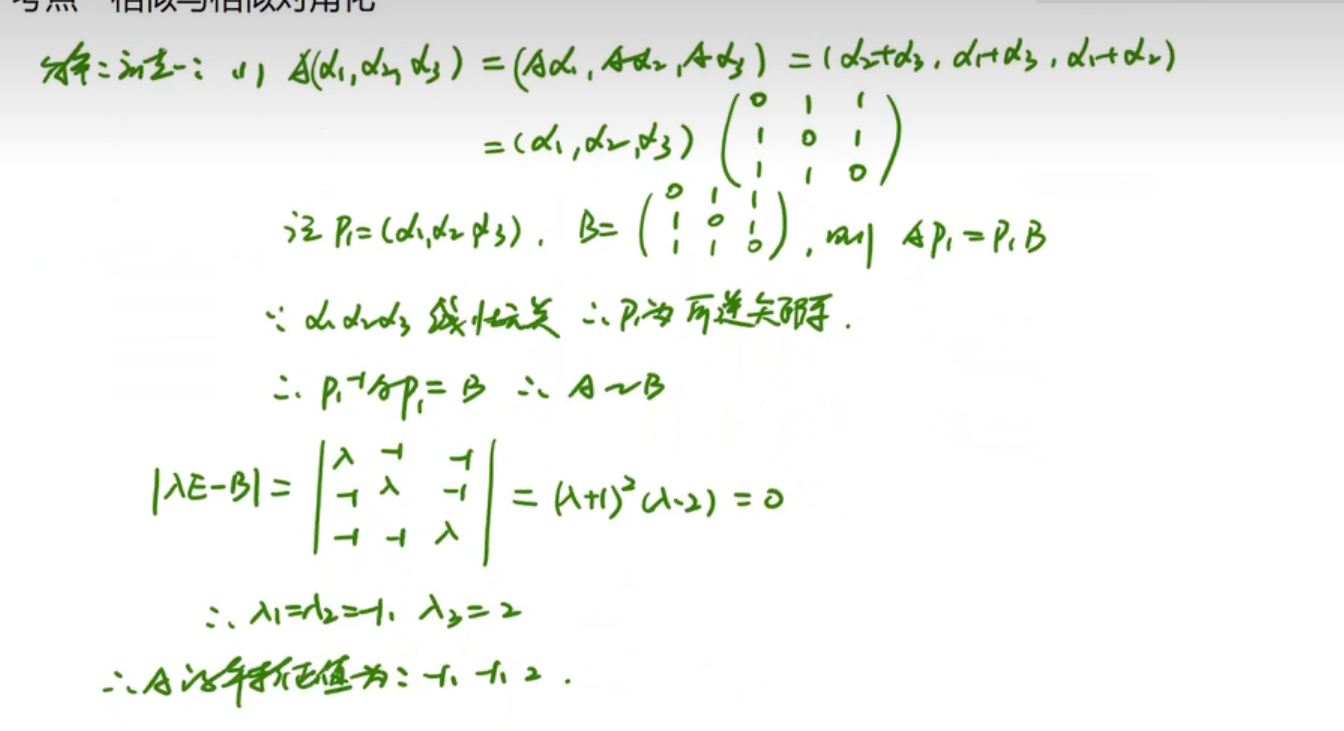 考点一 相似与相似对角化
解:法一: (1) A(α₁,α₂,α₃) = (Aα₁, Aα₂, Aα₃) = (α₂+α₃, α₁+α₃, α₁+α₂)
= (α₁,α₂,α₃) (0 1 1
1 0 1
1 1 0)
记 P₁=(α₁,α₂,α₃), B= (0 1 1
1 0 1
1 1 0), 则 AP₁=P₁B
∵ α₁α₂α₃ 线性无关 ∴ P₁为可逆矩阵.
∴ P₁⁻¹AP₁= B ∴ A~B
|λE-B| = |λ -1 -1
-1 λ -1
-1 -1 λ| = (λ+1)²(λ-2) = 0
∴ λ₁=λ₂=-1, λ₃=2
∴ A的特征值为: -1, -1, 2.